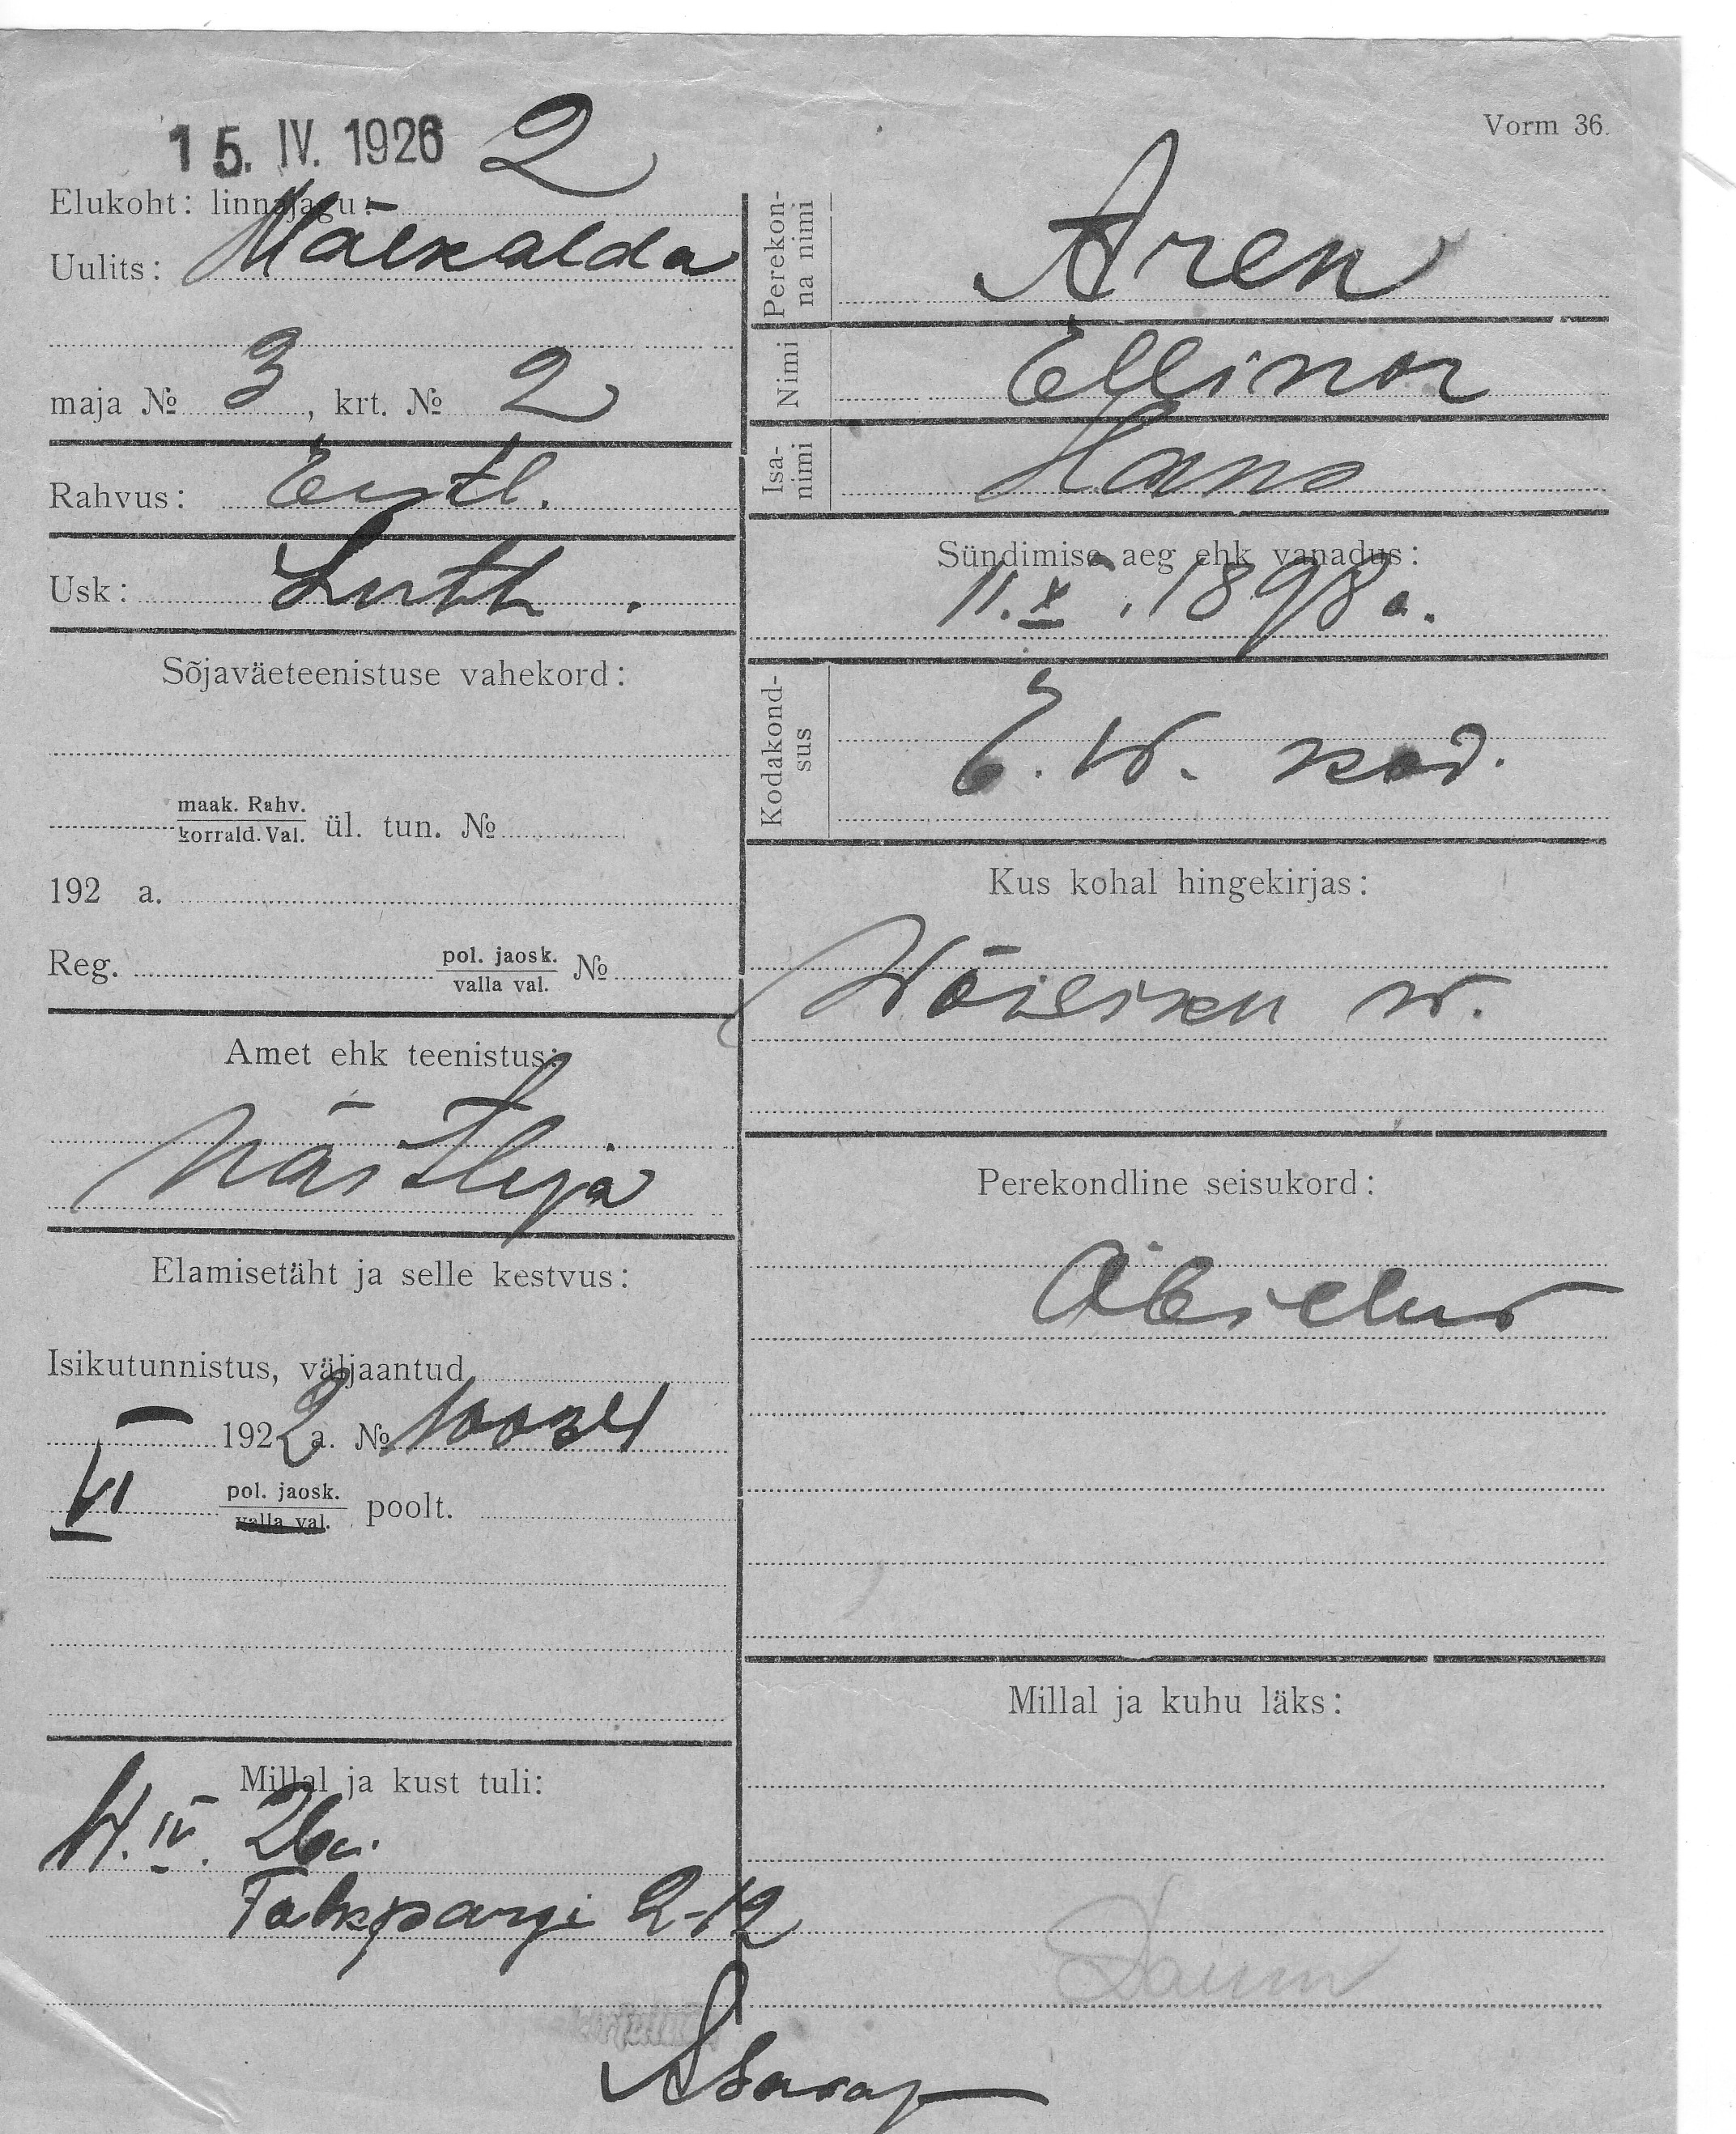 15. IV. 1926 2
Vorm 36.
Elukoht: linnajagu:
Uulits: Mäekalda
maja № 3, krt. № 2
Rahvus: Eestl.
Usk: Luth.
Sõjaväeteenistuse vahekord:
maak. Rahv.
korrald. Val. ül. tun. №
192 a.
Reg. pol. jaosk.
valla val. №
Amet ehk teenistus:
Näitleja
Elamisetäht ja selle kestvus:
Isikutunnistus, väljaantud
1922 a. №
VI pol. jaosk.
valla val. poolt.
Millal ja kust tuli:
IV. 26 a.
Falkpargi 2-12
Perekon-
na nimi
Aren
Nimi Ellinor
Isa-
nimi
Hans
Sündimise aeg ehk vanadus:
11. X. 1898 a.
Kodakond-
sus
E. W. kod.
Kus kohal hingekirjas:
Wõisiku w.
Perekondline seisukord:
Abielus
Millal ja kuhu läks: